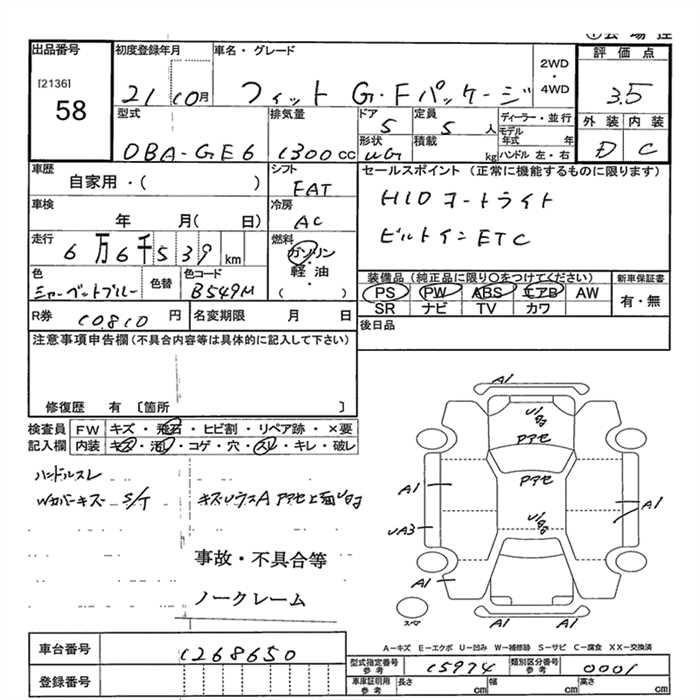 出品番号
[2136]
58
初度登録年月
21 10月
車名・グレード
フィット G・Fパッケージ
2WD
・
4WD
評価点
3.5
外装 内装
D C
型式
DBA-GE6
排気量
1300cc
ドア
5
定員
5人
形状
積載
kg
ディーラー・並行
モデル
年式 年
ハンドル 左・右
車歴
自家用・( )
シフト
FAT
セールスポイント(正常に機能するものに限ります)
HID ヨートライト
ビルトインETC
車検
年 月( 日)
冷房
AC
走行
6万6千539km
燃料
ガソリン
・
軽油
・
( )
色
シャーベットブルー
色替
色コード
B549M
装備品(純正品に限り○をつけてください)
PS PW ABS エアB AW
SR ナビ TV カワ
新車保証書
有・無
R券 10,810 円
名変期限 月 日
後日品
注意事項申告欄(不具合内容等は具体的に記入して下さい)
修復歴 有 〔箇所 〕
検査員 FW キズ・飛石・ヒビ割・リペア跡・×要
記入欄 内装 キズ・汚レ・コゲ・穴・スレ・キレ・破レ
ハンドルスレ
Wカバーキズ S/T
事故・不具合等
ノークレーム
A1
アアセ
アアセ
A1
UA3
A1
A1
A1
A1
スペア
A-キズ E-エクボ U-凹み W-補修跡 S-サビ C-腐食 XX-交換済
車台番号 1268650
登録番号
型式指定番号
参考
15974
類別区分番号
参考
0001
車庫証明用
参考
長さ cm 幅 cm 高さ cm